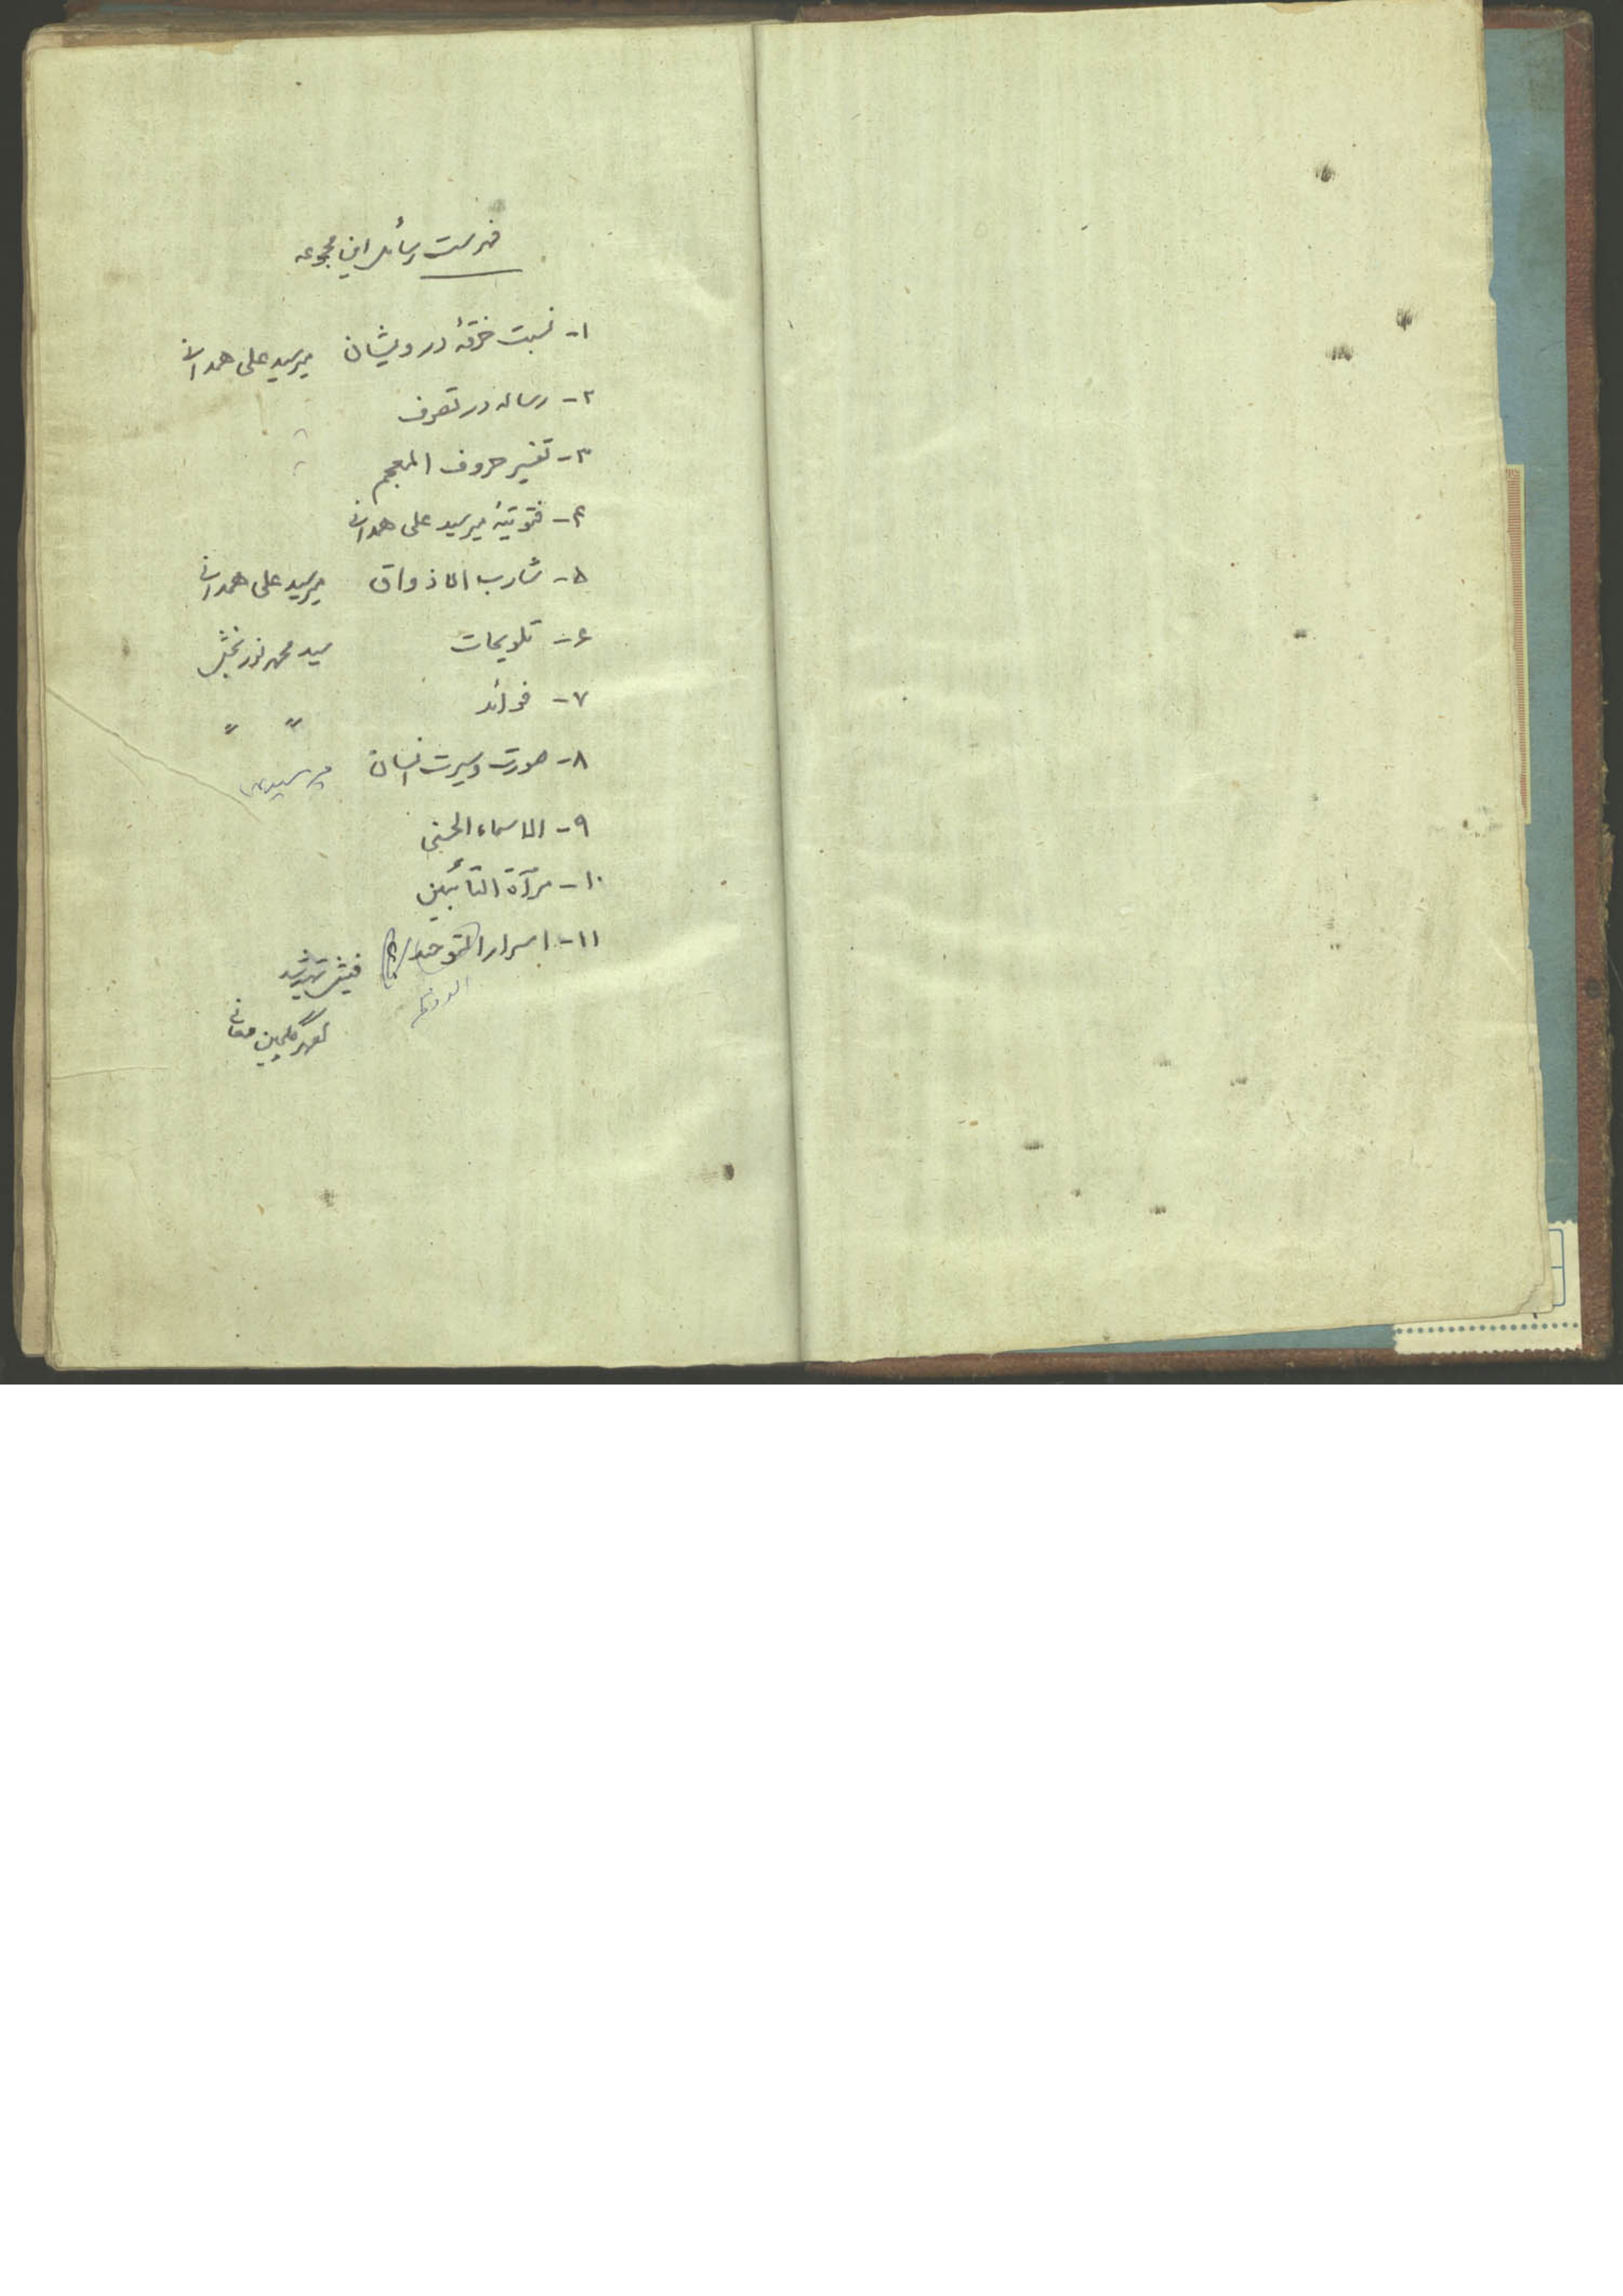 فهرست رسائل این مجموعه
۱- نسبت خرقهٔ درویشان میرسید علی همدانی
۲- رساله در تصوف
۳- تفسیر حروف المعجم
۴- فتوتیهٔ میرسید علی همدانی
۵- مشارب الاذواق میرسید علی همدانی
۶- تلویحات سید محمد نوربخش
۷- فوائد " "
۸- صورت و سیرت انسان میرسید
۹- الاسماء الحسنی
۱۰- مرآة التائبین
۱۱- اسرار فیش تهیه شد
گلچین معانی